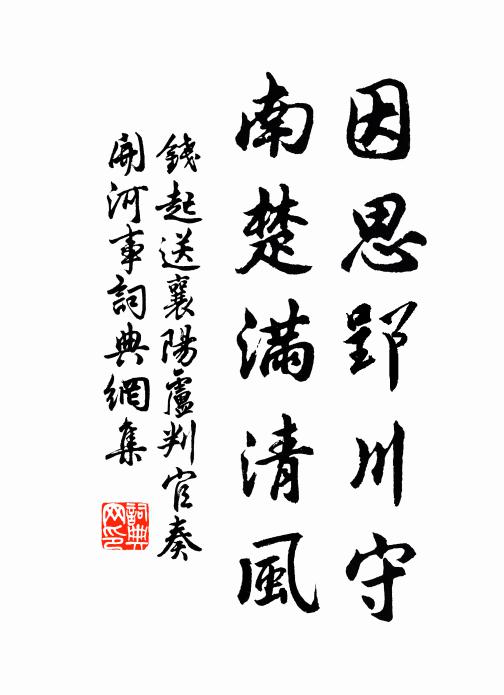 因思郢川守
南楚滿清風
錢起送襄陽盧判官奏
開河事詞典網集
詞典网印